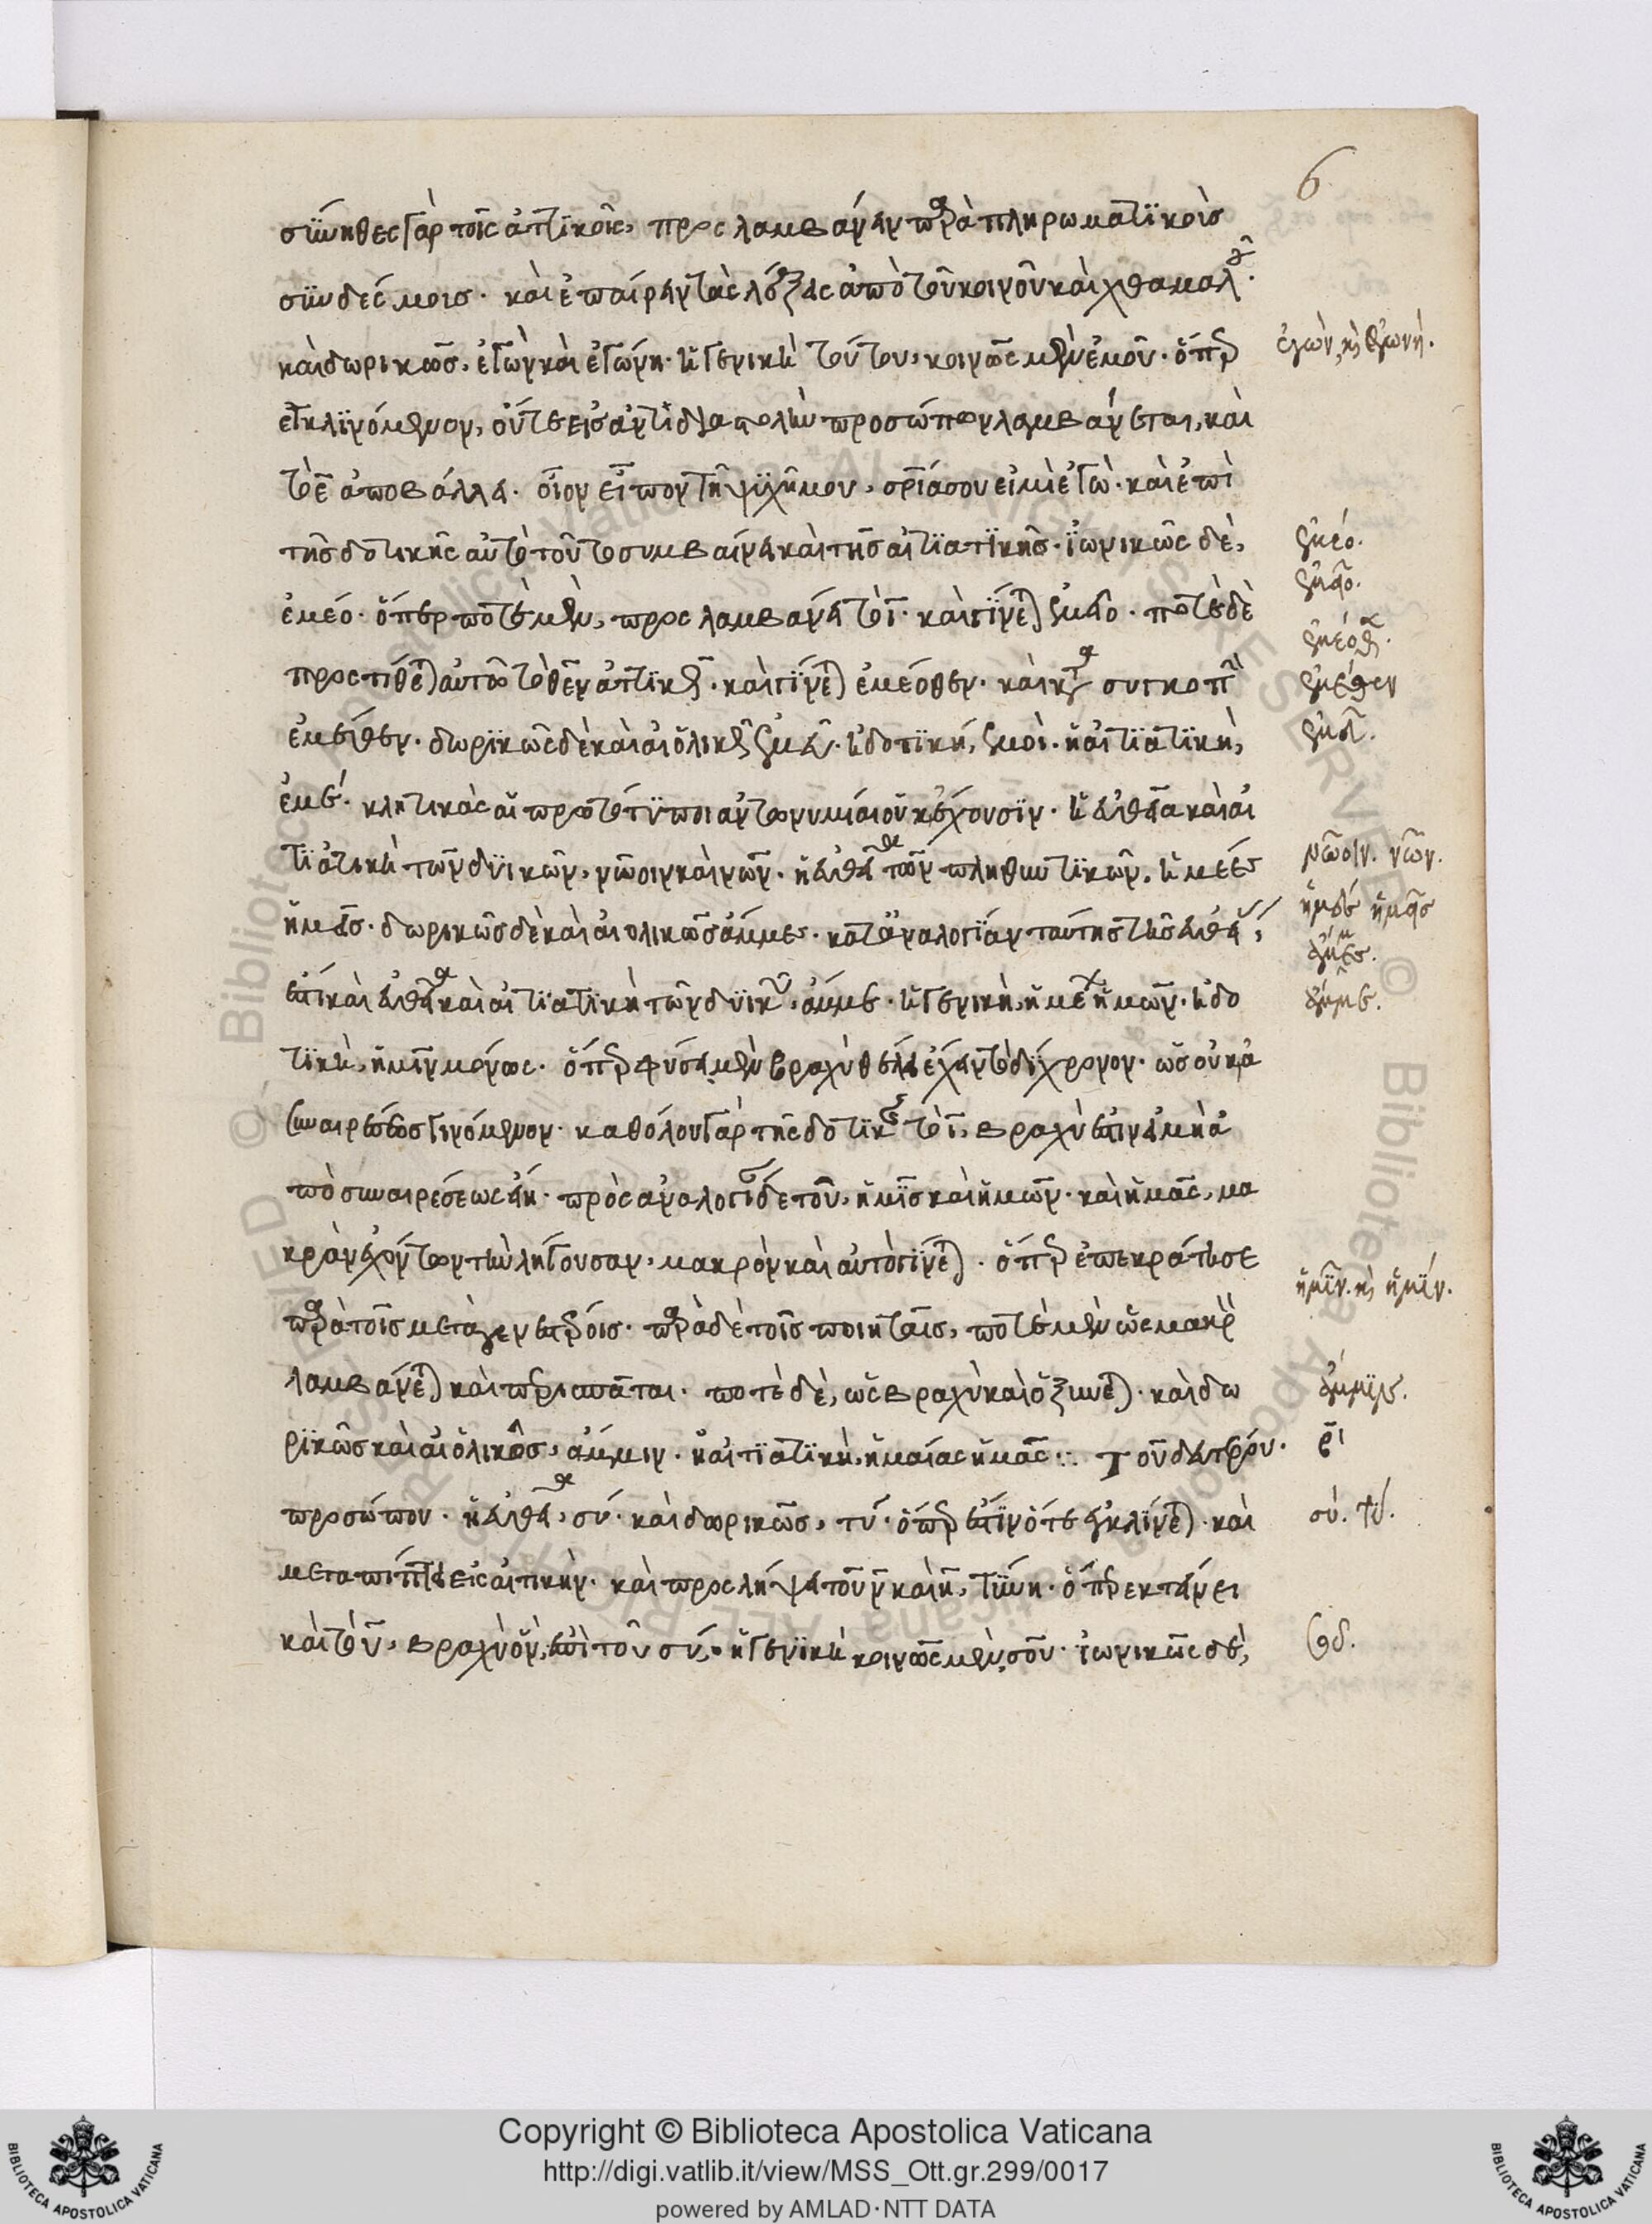 6
σύνηθες γὰρ τοῖς ἀττικοῖς, προσλαμβάνειν παρὰ πληρωματικοῖς
συνδέσμοις. καὶ ἐπαίρειν τὰς λέξεις ἀπὸ τοῦ κοινοῦ καὶ χθαμαλοῦ.
καὶ δωρικῶς, ἐγὼν καὶ ἐγώνη. ἡ γενικὴ τούτου, κοινῶς μὲν ἐμοῦ. ὅπερ
ἐγκλινόμενον, οὔτε εἰς ἀντιδιαστολὴν προσώπου λαμβάνεται, καὶ
τὸ ε ἀποβάλλει. οἷον εἶπον τῇ ψυχῇ μου, σου εἰμὶ ἐγώ. καὶ ἐπὶ
τῆς δοτικῆς αὐτὸ τοῦτο συμβαίνει καὶ τῆς αἰτιατικῆς. ἰωνικῶς δὲ,
ἐμέο. ὅπερ ποτὲ μὲν, προσλαμβάνει τὸ ι. καὶ γίνεται ἐμεῖο. ποτὲ δὲ
προστίθεται αὐτῷ τὸ θεν ἀττικῶς. καὶ γίνεται ἐμέοθεν. καὶ κατὰ συγκοπὴν
ἐμέθεν. δωρικῶς δὲ καὶ αἰολικῶς ἐμεῦ. ἡ δοτικὴ, ἐμοί. ἡ αἰτιατικὴ,
ἐμέ. κλητικὰς αἱ πρωτότυποι ἀντωνυμίαι οὐκ ἔχουσιν. ἡ εὐθεῖα καὶ αἰ
τιατικὴ τῶν δυικῶν, νῶιν καὶ νῶν. ἡ εὐθεῖα τῶν πληθυντικῶν. ἡμέες
ἡμεῖς. δωρικῶς δὲ καὶ αἰολικῶς ἄμμες. κατ' ἀναλογίαν ταύτης τῆς εὐθείας,
ἐστὶ καὶ εὐθεῖα καὶ αἰτιατικὴ τῶν δυικῶν, ἄμμε. ἡ γενικὴ, ἡμέων ἡμῶν. ἡ δο
τικὴ, ἡμῖν μόνως. ὅπερ φύσει μὲν βραχὺ θέλει ἔχειν τὸ δίχρονον. ὡς οὐκ ἀ
συναιρέσεως γινόμενον. καθόλου γὰρ τῆς δοτικῆς τὸ ι, βραχύ ἐστιν εἰ μὴ ἀ
πὸ συναιρέσεως εἴη. πρὸς ἀναλογίαν δὲ τοῦ, ἡμεῖς καὶ ἡμῶν. καὶ ἡμᾶς, μα
κρὰν ἐχόντων τὴν λήγουσαν, μακρὸν καὶ αὐτὸ γίνεται. ὅπερ ἐπεκράτησε
παρὰ τοῖς μεταγενεστέροις. παρὰ δὲ τοῖς ποιηταῖς, ποτὲ μὲν ὡς μακρὸν
λαμβάνεται καὶ περισπᾶται. ποτὲ δὲ, ὡς βραχὺ καὶ ὀξύνεται. καὶ δω
ρικῶς καὶ αἰολικῶς, ἄμμιν. ἡ αἰτιατικὴ, ἡμέας ἡμᾶς :. Τοῦ δευτέρου.
προσώπου. ἡ εὐθεῖα, σύ. καὶ δωρικῶς, τύ. ὅπερ ἔστιν ὅτε ἐγκλίνεται. καὶ
μεταπίπτει εἰς αἰτιατικήν. καὶ προσλήψει τοῦ ν καὶ η, τύνη. ὅπερ ἐκτείνει
καὶ τὸ υ, βραχὺ ὂν, ἐπὶ τοῦ σύ. ἡ γενικὴ κοινῶς μὲν, σοῦ. ἰωνικῶς δὲ,
ἐγών, κ ἐγωνή.
ἐμέο.
ἐμεῖο.
ἐμέοθεν.
ἐμέθεν
ἐμεῦ.
νῶιν. νῶν.
ἡμεῖς ἡμᾶς
ἄμμες.
ἄμμε.
ἡμῖν. κ ἡμίν.
ἄμμιν.
σύ. τύ.
σέο.
Copyright © Biblioteca Apostolica Vaticana
http://digi.vatlib.it/view/MSS_Ott.gr.299/0017
powered by AMLAD·NTT DATA
BIBLIOTECA APOSTOLICA VATICANA
BIBLIOTECA APOSTOLICA VATICANA